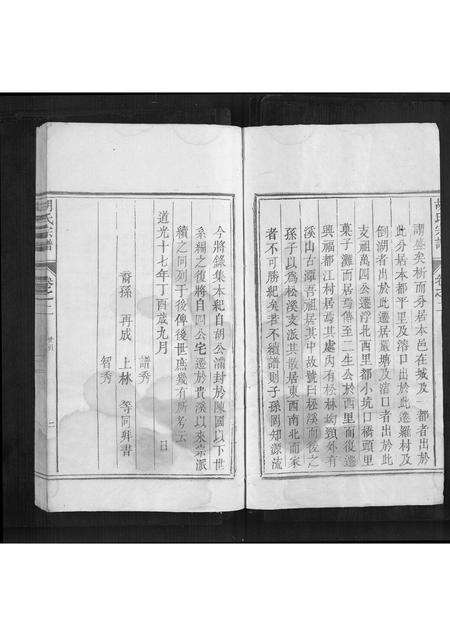 胡氏宗譜
卷之一
謂盛矣析而分居本邑在城及 都者出於
此分居本都平里及滘口出於此遷羅村及
倒湖者出於此遷居嚴塘及滘口者出於此
支祖萬四公遷浮北西里都小坑口橋頭里
菓子灘而居焉傳至二生公於西里而復遷
興福都江村居焉其處內有松林樹頸外有
溪山古潭吾祖居其中故號曰松溪而後之
孫子以為松溪支派其散居東西南北而家
者不可勝紀矣若不續譜則子孫罔知源流
今將錄集本紀自胡公滿封於陳國以下世
系編之復將自四公宅遷於貴溪以來宗派
續之同列于後俾後世庶幾有所考云
道光十七年丁酉歲九月 日
譜秀
裔孫 再咸 上林 等同拜書
智秀
胡氏宗譜
卷之一
世引
二